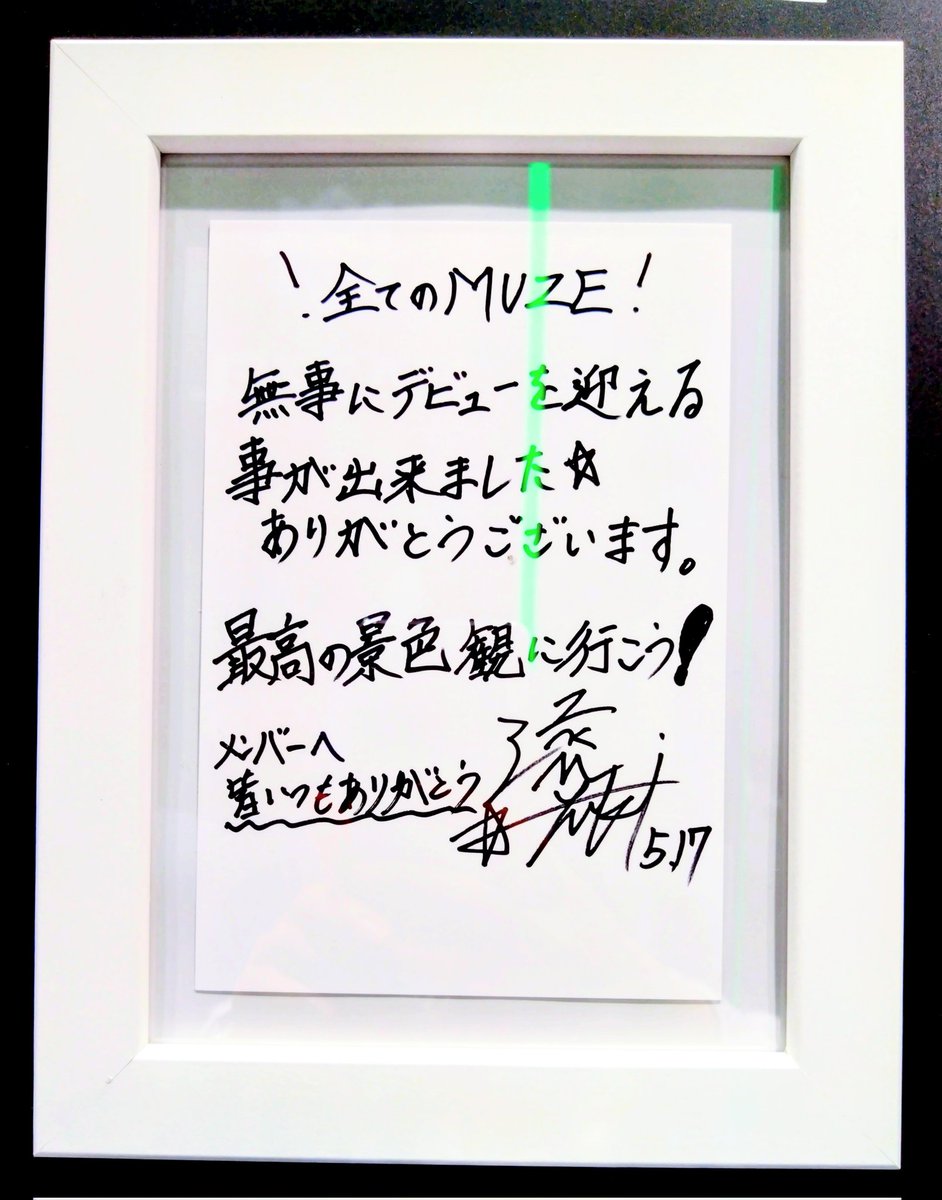 ！全てのMUZE！
無事にデビューを迎える
事が出来ました☆
ありがとうございます。
最高の景色観に行こう！
メンバーへ
皆いつもありがとう
5.17